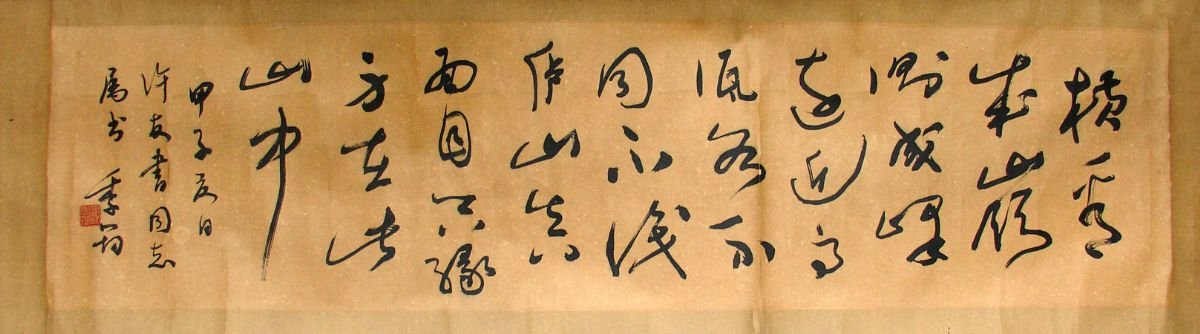 横看
成嶺
側成峰
遠近高
低各不
同不識
庐山真
面目只緣
身在此
山中
甲子夏日
许友書同志
属书 季